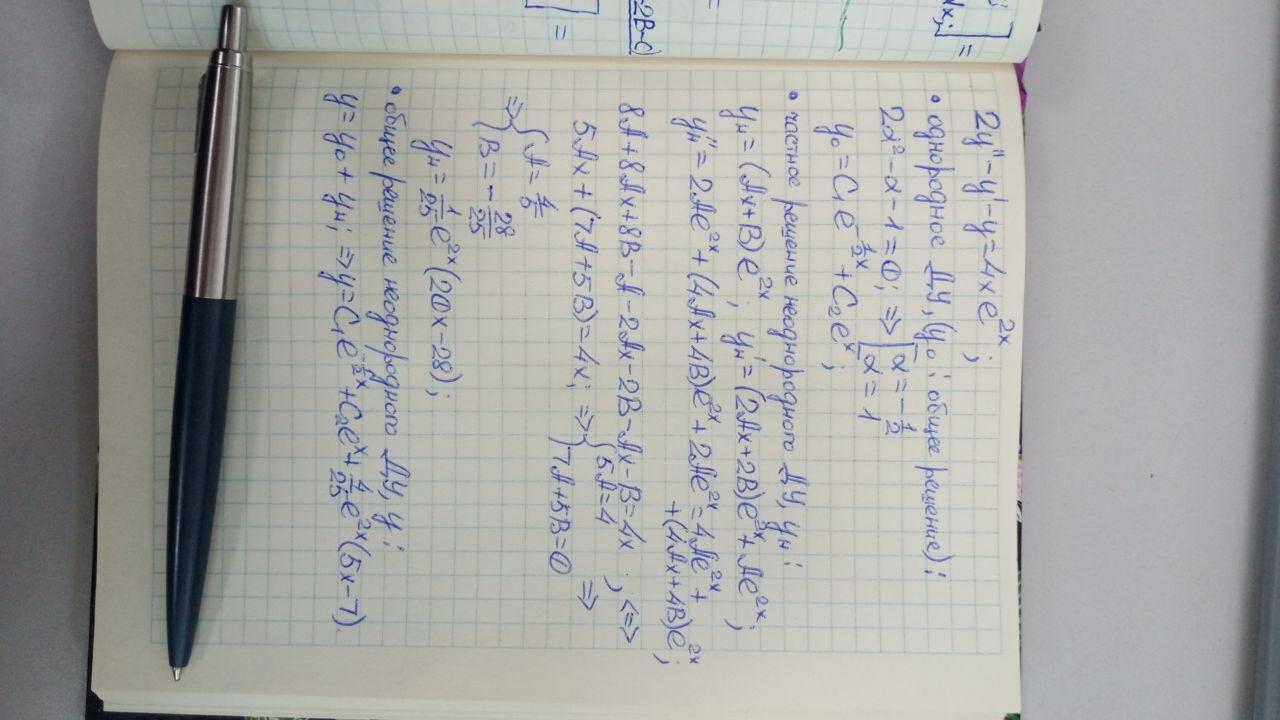 2y''-y'-y=4xe^{2x};
• однородное ДУ, (y₀; общее решение):
2α²-α-1=0; ⇒ [α=-1/2
[α=1
y₀=C₁e^{-1/2x}+C₂e^x;
• частное решение неоднородного ДУ, yн:
yн=(Ax+B)e^{2x}; y'н=(2Ax+2B)e^{2x}+Ae^{2x};
y''н=2Ae^{2x}+(4Ax+4B)e^{2x}+2Ae^{2x}=4Ae^{2x}+
+(4Ax+4B)e^{2x};
8A+8Ax+8B-A-2Ax-2B-Ax-B=4x; ⇔
5Ax+(7A+5B)=4x; ⇒ {5A=4
{7A+5B=0 ⇒
⇒ {A=4/5
{B=-28/25
yн=1/25e^{2x}(20x-28);
• общее решение неоднородного ДУ, y:
y=y₀+yн; ⇒ y=C₁e^{-1/2x}+C₂e^x+4/25e^{2x}(5x-7).
-2B-C)
=
=
=